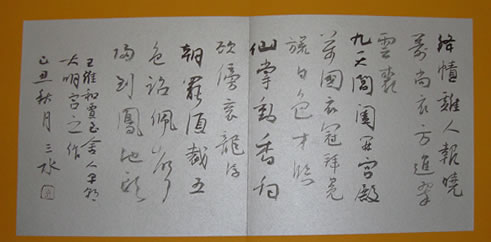 絳幘雞人報曉
筹尚衣方進翠
雲裘
九天閶闔開宮殿
萬國衣冠拜冕
旒日色才臨
仙掌動香烟
欲傍袞龍浮
朝罷須裁五
色詔佩声
歸到鳳池頭
王維和賈至舍人早朝
大明宮之作
己丑秋月三水